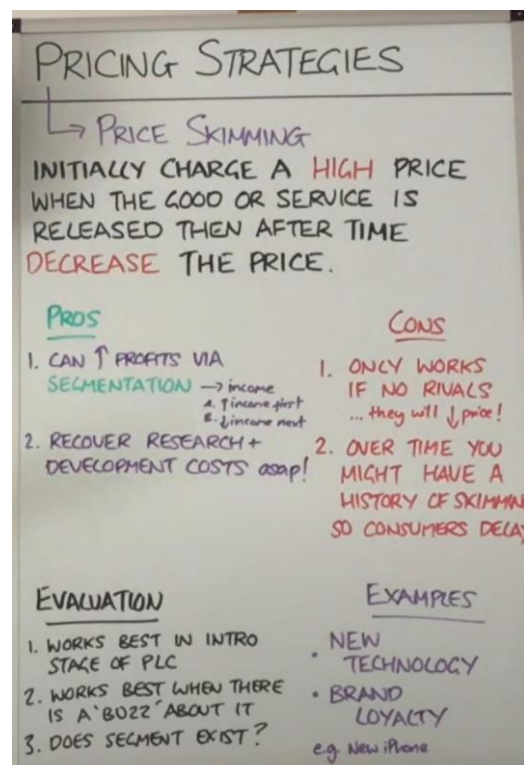 PRICING STRATEGIES
→ PRICE SKIMMING
INITIALLY CHARGE A HIGH PRICE
WHEN THE GOOD OR SERVICE IS
RELEASED THEN AFTER TIME
DECREASE THE PRICE.
PROS
1. CAN ↑ PROFITS VIA
SEGMENTATION → income
A. ↑ income first
B. ↓ income next
2. RECOVER RESEARCH +
DEVELOPMENT COSTS asap!
CONS
1. ONLY WORKS
IF NO RIVALS
... they will ↓ price!
2. OVER TIME YOU
MIGHT HAVE A
HISTORY OF SKIMMIN
SO CONSUMERS DELAY
EVALUATION
1. WORKS BEST IN INTRO
STAGE OF PLC
2. WORKS BEST WHEN THERE
IS A "BUZZ" ABOUT IT
3. DOES SEGMENT EXIST?
EXAMPLES
• NEW
TECHNOLOGY
• BRAND
LOYALTY
e.g. New iPhone